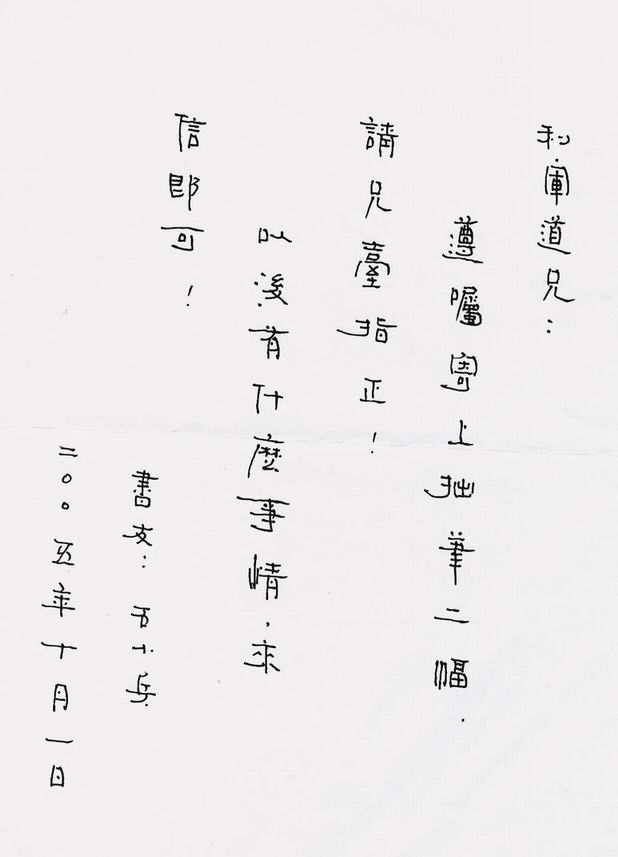 利軍道兄：
遵囑寄上拙筆二幅．
請兄臺指正！
以後有什麽事情，來
信即可！
書友：方小兵
二００五年十月一日